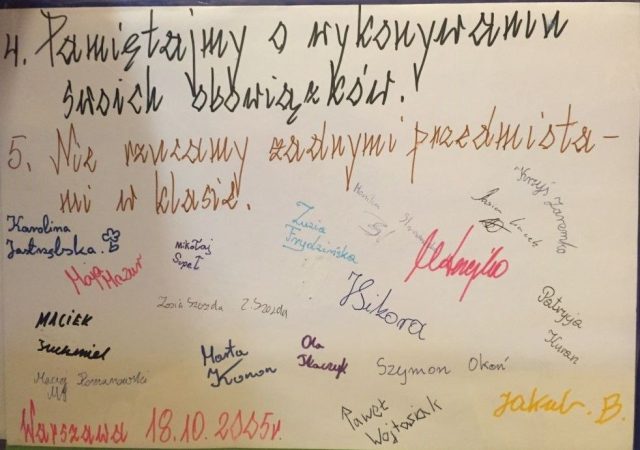 4. Pamiętajmy o wykonywaniu
swoich obowiązków!
5. Nie rzucamy żadnymi przedmiota-
mi w klasie.
Karolina
Jastrzębska.
Mikołaj
Zuzia
Frydzińska
Monika
Krzyś Zaremba
Maja Mazur
Zosia Szozda Z. Szozda
Sikora
Patrycja
MACIEK
Marta
Konon
Ola
Tkaczyk
Szymon Okoń
Maciej Romanowski
MR
Paweł
Wojtasiak
Jakub. B.
Warszawa 18.10.2005r.